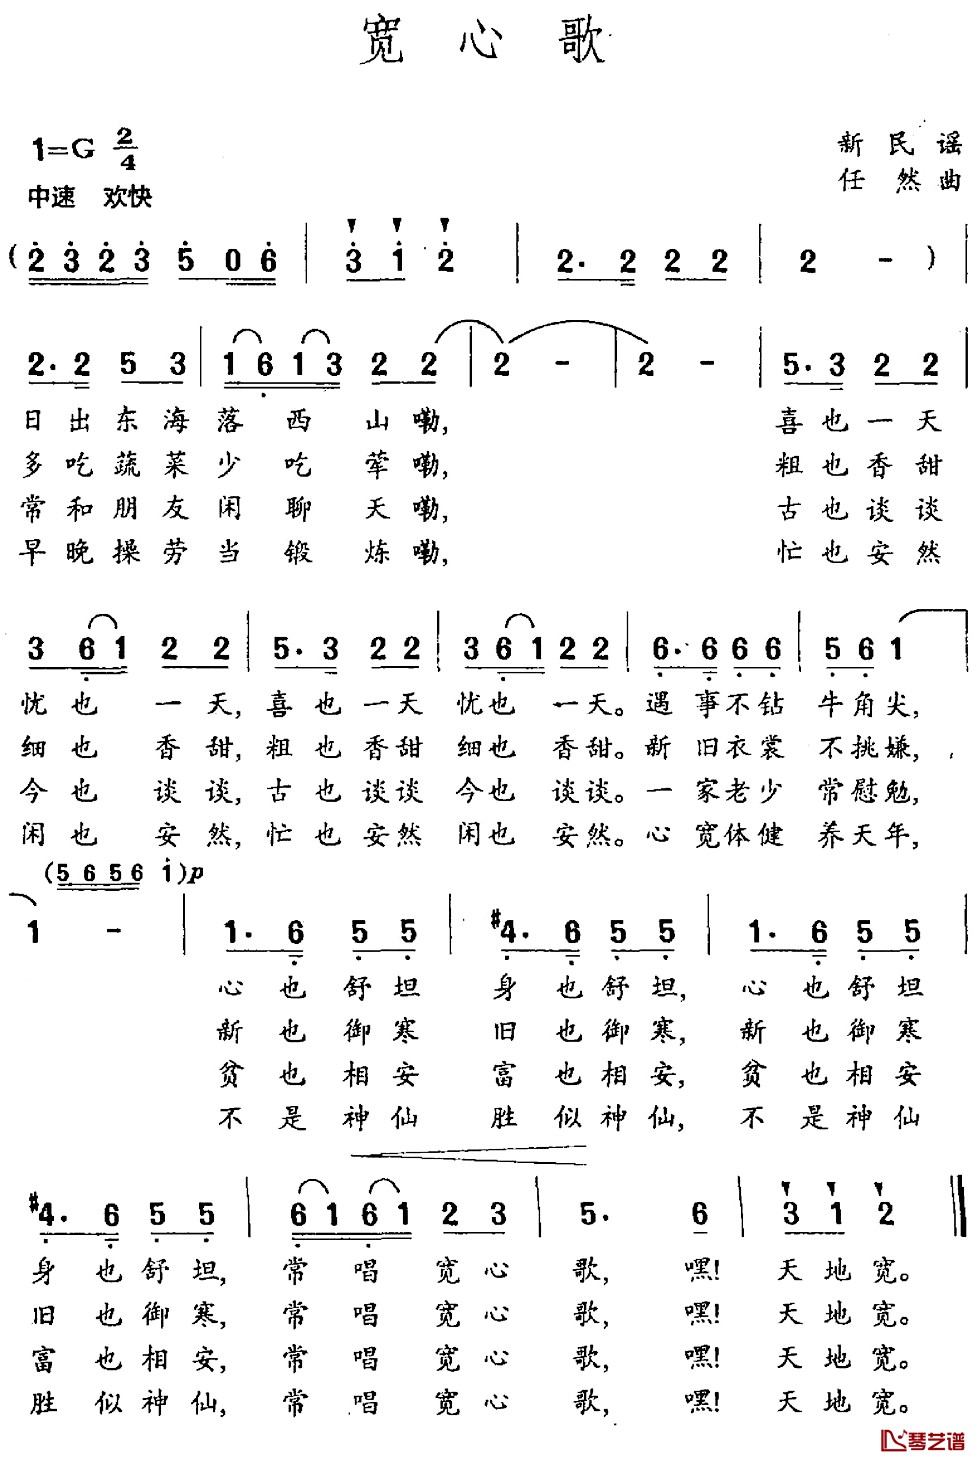 宽心歌
1=G 2/4
新民谣
中速 欢快
任然曲
(2323 506 | 312 | 2. 2 22 | 2 - )
2. 2 53 | 1613 22 | 2 - | 2 - | 5. 3 22 |
日出东海落西山嘞, 喜也一天
多吃蔬菜少吃荤嘞, 粗也香甜
常和朋友闲聊天嘞, 古也谈谈
早晚操劳当锻炼嘞, 忙也安然
3 61 22 | 5. 3 22 | 3 61 22 | 6. 6 66 | 56 1 |
忧也一天, 喜也一天 忧也一天。遇事不钻 牛角尖,
细也香甜, 粗也香甜 细也香甜。新旧衣裳 不挑嫌,
今也谈谈, 古也谈谈 今也谈谈。一家老少 常慰勉,
闲也安然, 忙也安然 闲也安然。心宽体健 养天年,
(5656 1)p
1 - | 1. 6 55 | #4. 6 55 | 1. 6 55 |
心也舒坦 身也舒坦, 心也舒坦
新也御寒 旧也御寒, 新也御寒
贫也相安 富也相安, 贫也相安
不是神仙 胜似神仙, 不是神仙
#4. 6 55 | 6161 23 | 5. 6 | 312 ‖
身也舒坦, 常唱宽心歌, 嘿! 天地宽。
旧也御寒, 常唱宽心歌, 嘿! 天地宽。
富也相安, 常唱宽心歌, 嘿! 天地宽。
胜似神仙, 常唱宽心歌, 嘿! 天地宽。
琴艺谱